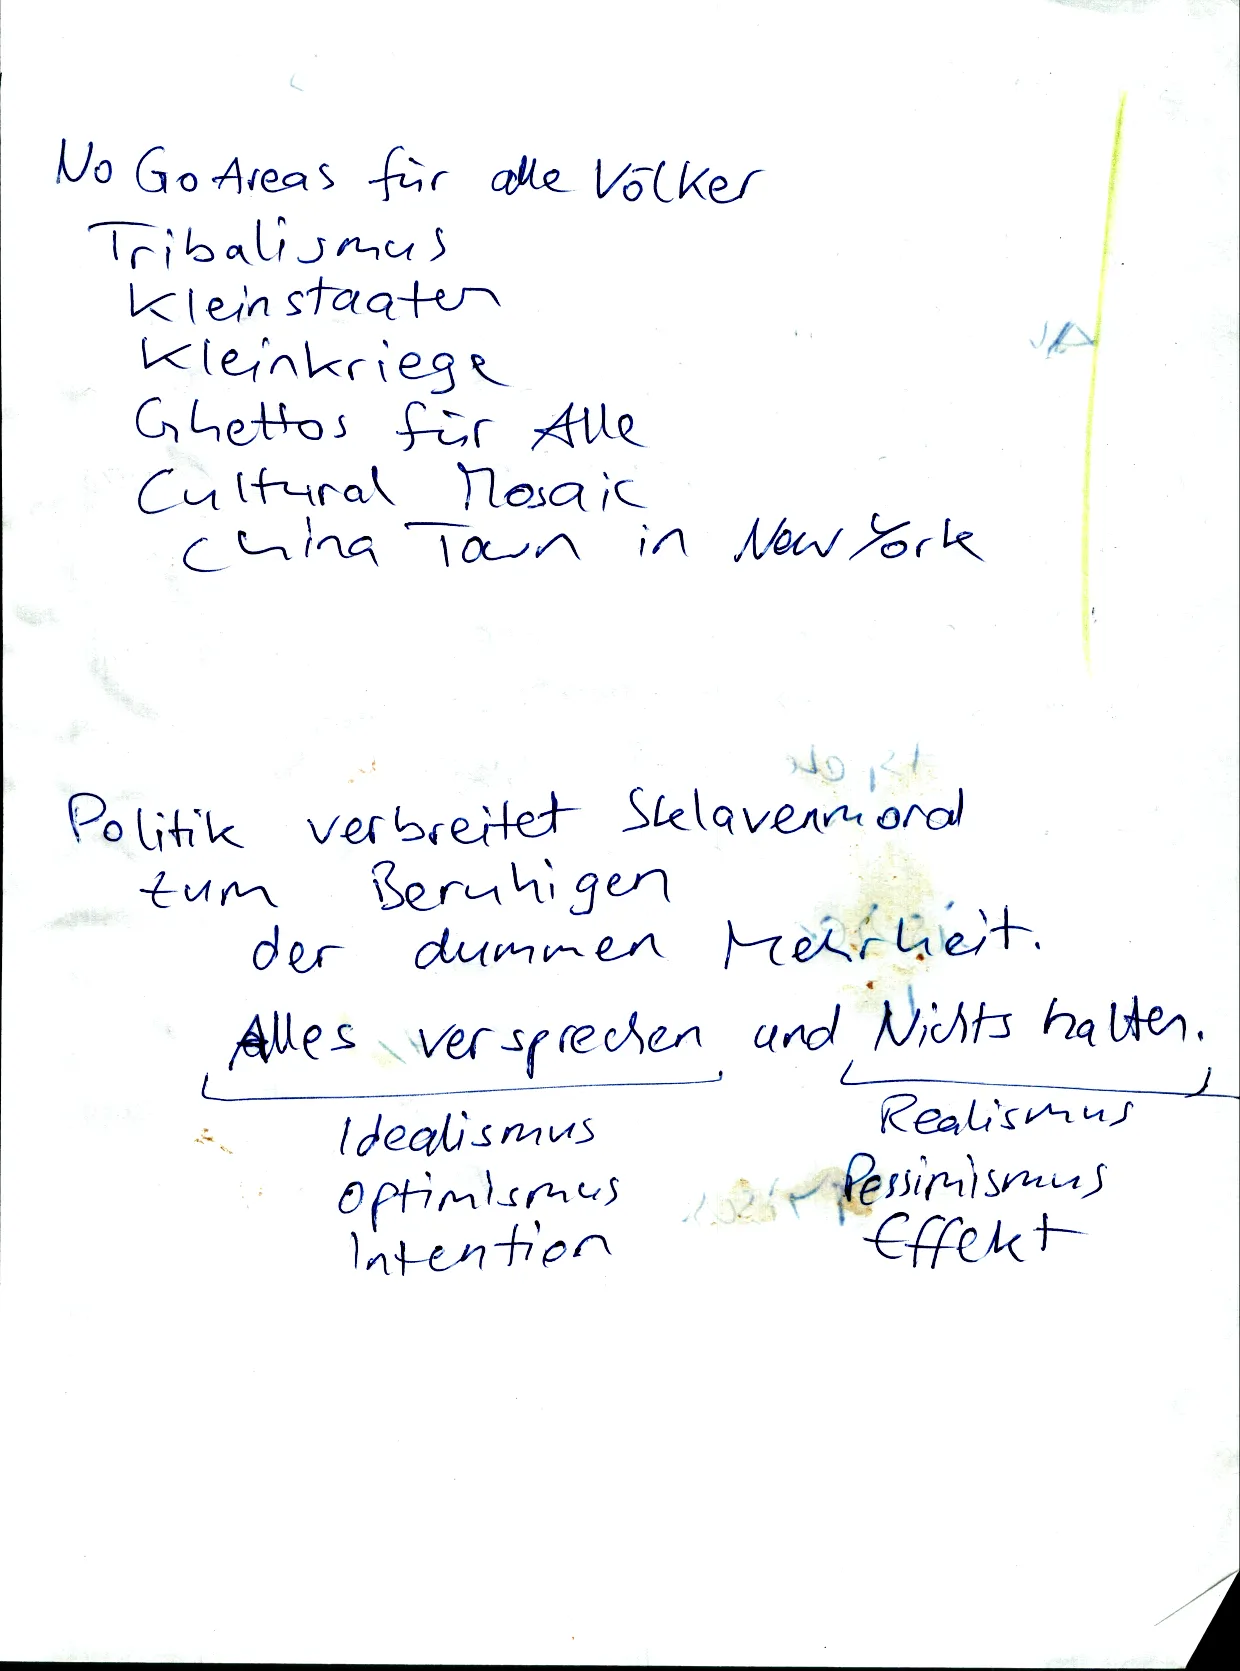 No Go Areas für alle Völker
Tribalismus
Kleinstaaten
Kleinkriege
Ghettos für Alle
Cultural Mosaic
China Town in New York
JA
Politik verbreitet Sklavenmoral
zum Beruhigen
der dummen Mehrheit.
Alles versprechen und Nichts halten.
Idealismus Realismus
Optimismus Pessimismus
Intention Effekt